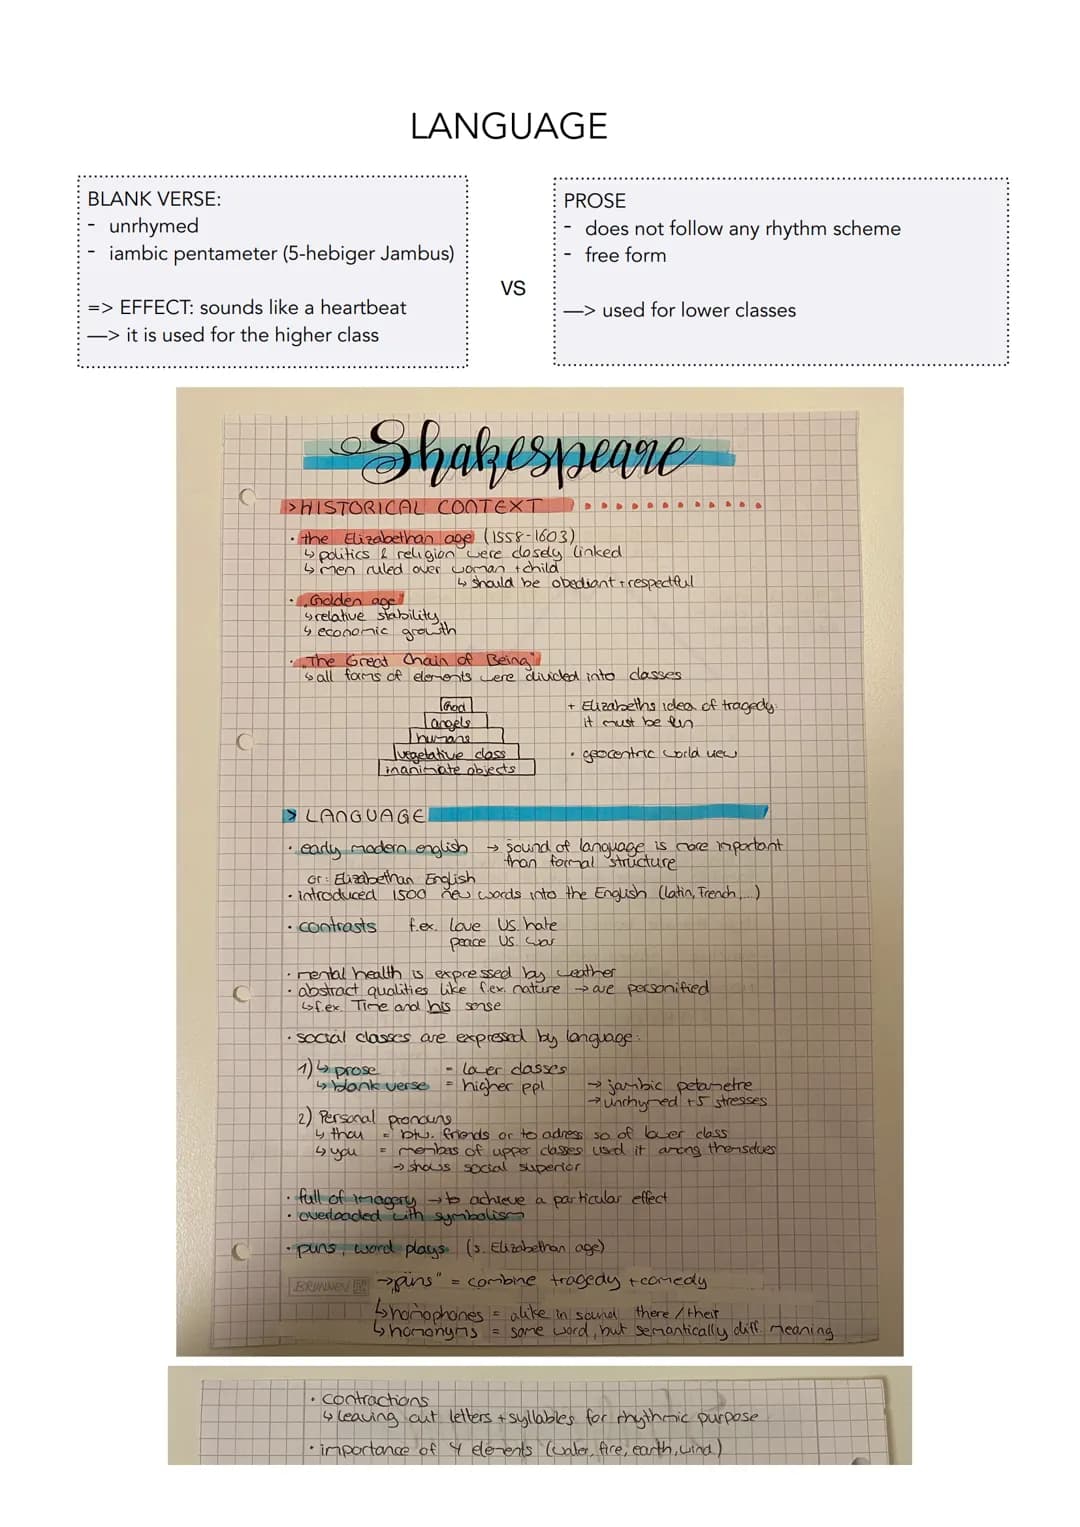 LANGUAGE
BLANK VERSE:
- unrhymed
- iambic pentameter (5-hebiger Jambus)
=> EFFECT: sounds like a heartbeat
—> it is used for the higher class
VS
PROSE
- does not follow any rhythm scheme
- free form
—> used for lower classes
Shakespeare
>HISTORICAL CONTEXT
• the Elizabethan age (1558-1603)
↳ politics & religion were closely linked
↳ men ruled over woman + child
↳ should be obediant + respectful
• „Golden age"
↳ relative stability
↳ economic growth
• „The Great Chain of Being"
↳ all forms of elements were divided into classes
God
angels
humans
vegetative class
inanimate objects
+ Elizabeths idea of tragedy:
it must be fun
• geocentric world view
> LANGUAGE
• early modern english → sound of language is more important
than formal structure
or: Elizabethan English
• introduced 1500 new words into the English (latin, French,...)
• contrasts f.ex. love VS. hate
peace VS. war
• mental health is expressed by weather
• abstract qualities like f.ex. nature → are personified
↳ f.ex. Time and his sense
• social classes are expressed by language:
1) ↳ prose - lower classes
↳ blank verse = higher ppl → jambic petametre
→ unrhymed + 5 stresses
2) Personal pronouns
↳ thou = btw. friends or to adress so of lower class
↳ you = membas of upper classes used it among themselves
→ shows social superior
• full of imagery → to achieve a particular effect
• overloaded with symbolism
• puns, word plays (s. Elizabethan age)
BRUNNEN
→ „puns" = combine tragedy + comedy
↳ homophones = alike in sound there / their
↳ homonyms = same word, but semantically diff. meaning
• contractions
↳ leaving out letters + syllables for rhythmic purpose
• importance of 4 elements (water, fire, earth, wind)